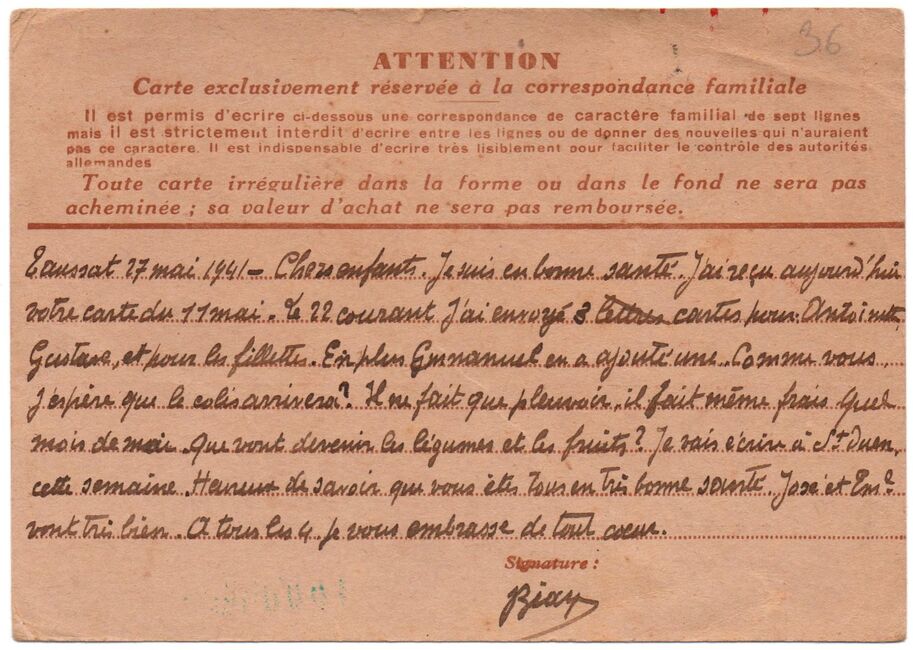 36
ATTENTION
Carte exclusivement réservée à la correspondance familiale
Il est permis d'ecrire ci-dessous une correspondance de caractére familial de sept lignes
mais il est strictement interdit d'ecrire entre les lignes ou de donner des nouvelles qui n'auraient
pas ce caractere. Il est indispensable d'ecrire très lisiblement pour faciliter le contrôle des autorités
allemandes
Toute carte irrégulière dans la forme ou dans le fond ne sera pas
acheminée ; sa valeur d'achat ne sera pas remboursée.
Taussat 27 mai 1941 - Chers enfants. Je suis en bonne santé. J'ai reçu aujourd'hui
votre carte du 11 mai. Le 22 courant J'ai envoyé 3 lettres cartes pour Antoinette,
Gustave, et pour les fillettes. En plus Emmanuel en a ajouté une. Comme vous
j'espère que le colis arrivera? Il ne fait que pleuvoir, il fait même frais Quel
mois de mai. Que vont devenir les légumes et les fruits? Je vais écrire à St Ouen,
cette semaine. Heureux de savoir que vous êtes tous en très bonne santé. José et Eml
vont très bien. A tous les 4 je vous embrasse de tout coeur.
Signature :